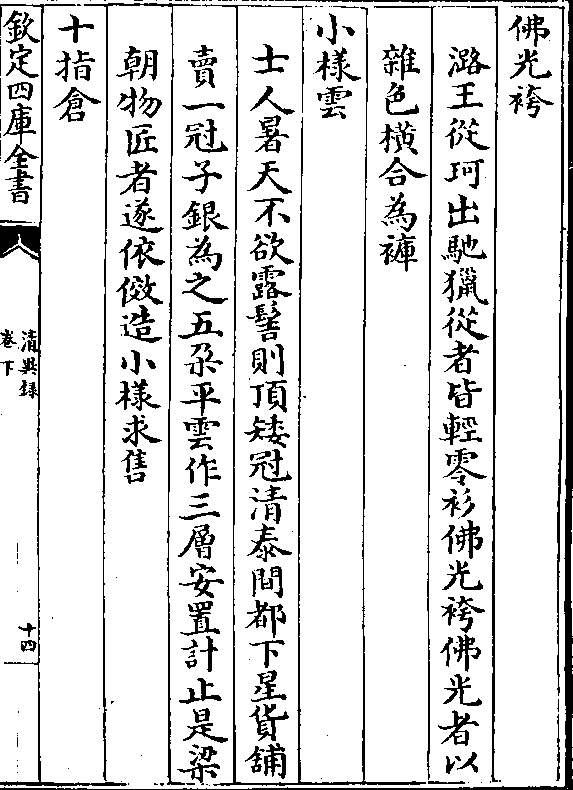 佛光袴
潞王從珂出馳獵從者皆輕零衫佛光袴佛光者以
雜色橫合為褲
小樣雲
士人暑天不欲露髻則頂矮冠清泰間都下星貨舖
賣一冠子銀為之五朶平雲作三層安置計止是梁
朝物匠者遂依倣造小樣求售
十指倉
欽定四庫全書
清異錄
卷下
十四